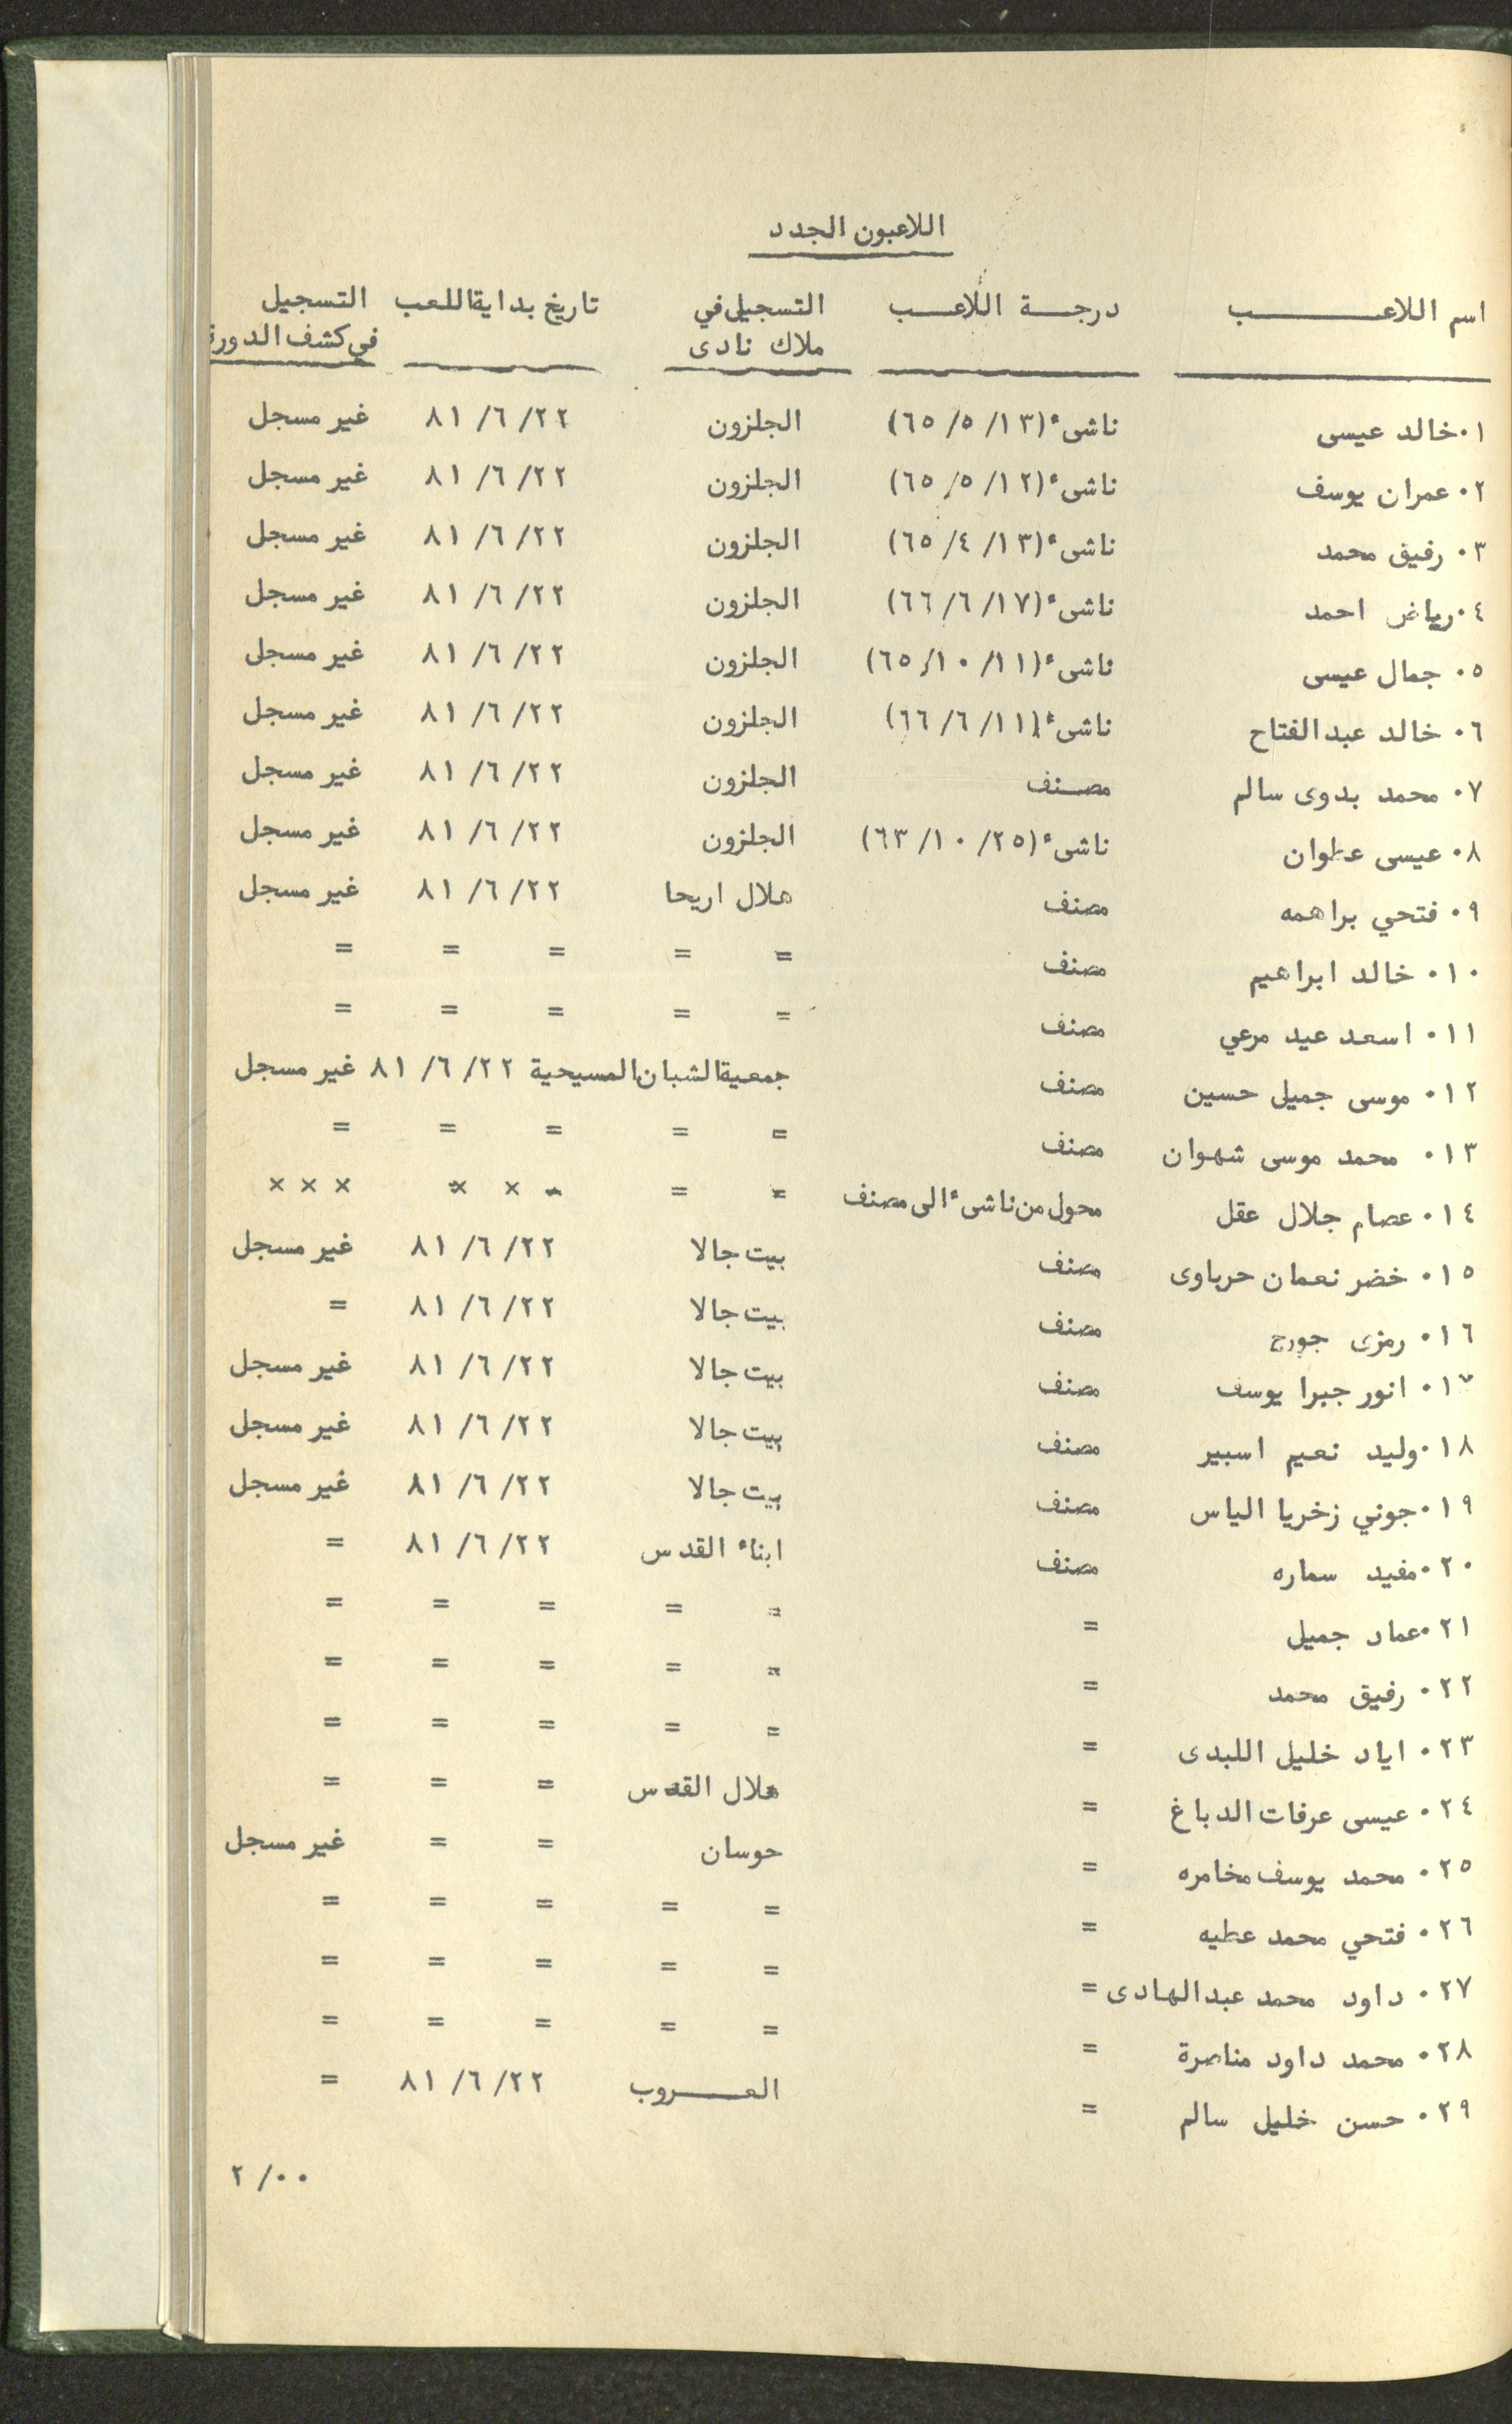 اللاعبون الجدد
اسم اللاعب درجة اللاعب التسجيل في ملاك نادى تاريخ بداية اللعب التسجيل في كشف الدورة
٠١ خالد عيسى ناشىء (١٣/ ٥/ ٦٥) الجلزون ٢٢/ ٦/ ٨١ غير مسجل
٠٢ عمران يوسف ناشىء (١٢/ ٥/ ٦٥) الجلزون ٢٢/ ٦/ ٨١ غير مسجل
٠٣ رفيق محمد ناشىء (١٣/ ٤/ ٦٥) الجلزون ٢٢/ ٦/ ٨١ غير مسجل
٠٤ رياض احمد ناشىء (١٧/ ٦/ ٦٦) الجلزون ٢٢/ ٦/ ٨١ غير مسجل
٠٥ جمال عيسى ناشىء (١١/ ١٠/ ٦٥) الجلزون ٢٢/ ٦/ ٨١ غير مسجل
٠٦ خالد عبدالفتاح ناشىء (١١/ ٦/ ٦٦) الجلزون ٢٢/ ٦/ ٨١ غير مسجل
٠٧ محمد بدوى سالم مصنف الجلزون ٢٢/ ٦/ ٨١ غير مسجل
٠٨ عيسى عطوان ناشىء (٢٥/ ١٠/ ٦٣) الجلزون ٢٢/ ٦/ ٨١ غير مسجل
٠٩ فتحي براهمه مصنف هلال اريحا ٢٢/ ٦/ ٨١ غير مسجل
٠١٠ خالد ابراهيم مصنف = = = = =
٠١١ اسعد عيد مرعي مصنف = = = = =
٠١٢ موسى جميل حسين مصنف جمعية الشبان المسيحية ٢٢/ ٦/ ٨١ غير مسجل
٠١٣ محمد موسى شهوان مصنف = = = = =
٠١٤ عصام جلال عقل محول من ناشىء الى مصنف = = × × × × × ×
٠١٥ خضر نعمان حرباوى مصنف بيت جالا ٢٢/ ٦/ ٨١ غير مسجل
٠١٦ رمزى جورج مصنف بيت جالا ٢٢/ ٦/ ٨١ =
٠١٧ انور جبرا يوسف مصنف بيت جالا ٢٢/ ٦/ ٨١ غير مسجل
٠١٨ وليد نعيم اسبير مصنف بيت جالا ٢٢/ ٦/ ٨١ غير مسجل
٠١٩ جوني زخريا الياس مصنف بيت جالا ٢٢/ ٦/ ٨١ غير مسجل
٠٢٠ مفيد سماره مصنف ابناء القدس ٢٢/ ٦/ ٨١ =
٠٢١ عماد جميل = = = = = =
٠٢٢ رفيق محمد = = = = = =
٠٢٣ اياد خليل اللبدى = = = = = =
٠٢٤ عيسى عرفات الدباغ = هلال القدس = = =
٠٢٥ محمد يوسف مخامره = حوسان = = غير مسجل
٠٢٦ فتحي محمد عطيه = = = = = =
٠٢٧ داود محمد عبدالهادى = = = = = =
٠٢٨ محمد داود مناصرة = = = = = =
٠٢٩ حسن خليل سالم = العروب ٢٢/ ٦/ ٨١ =
٠٠/ ٢